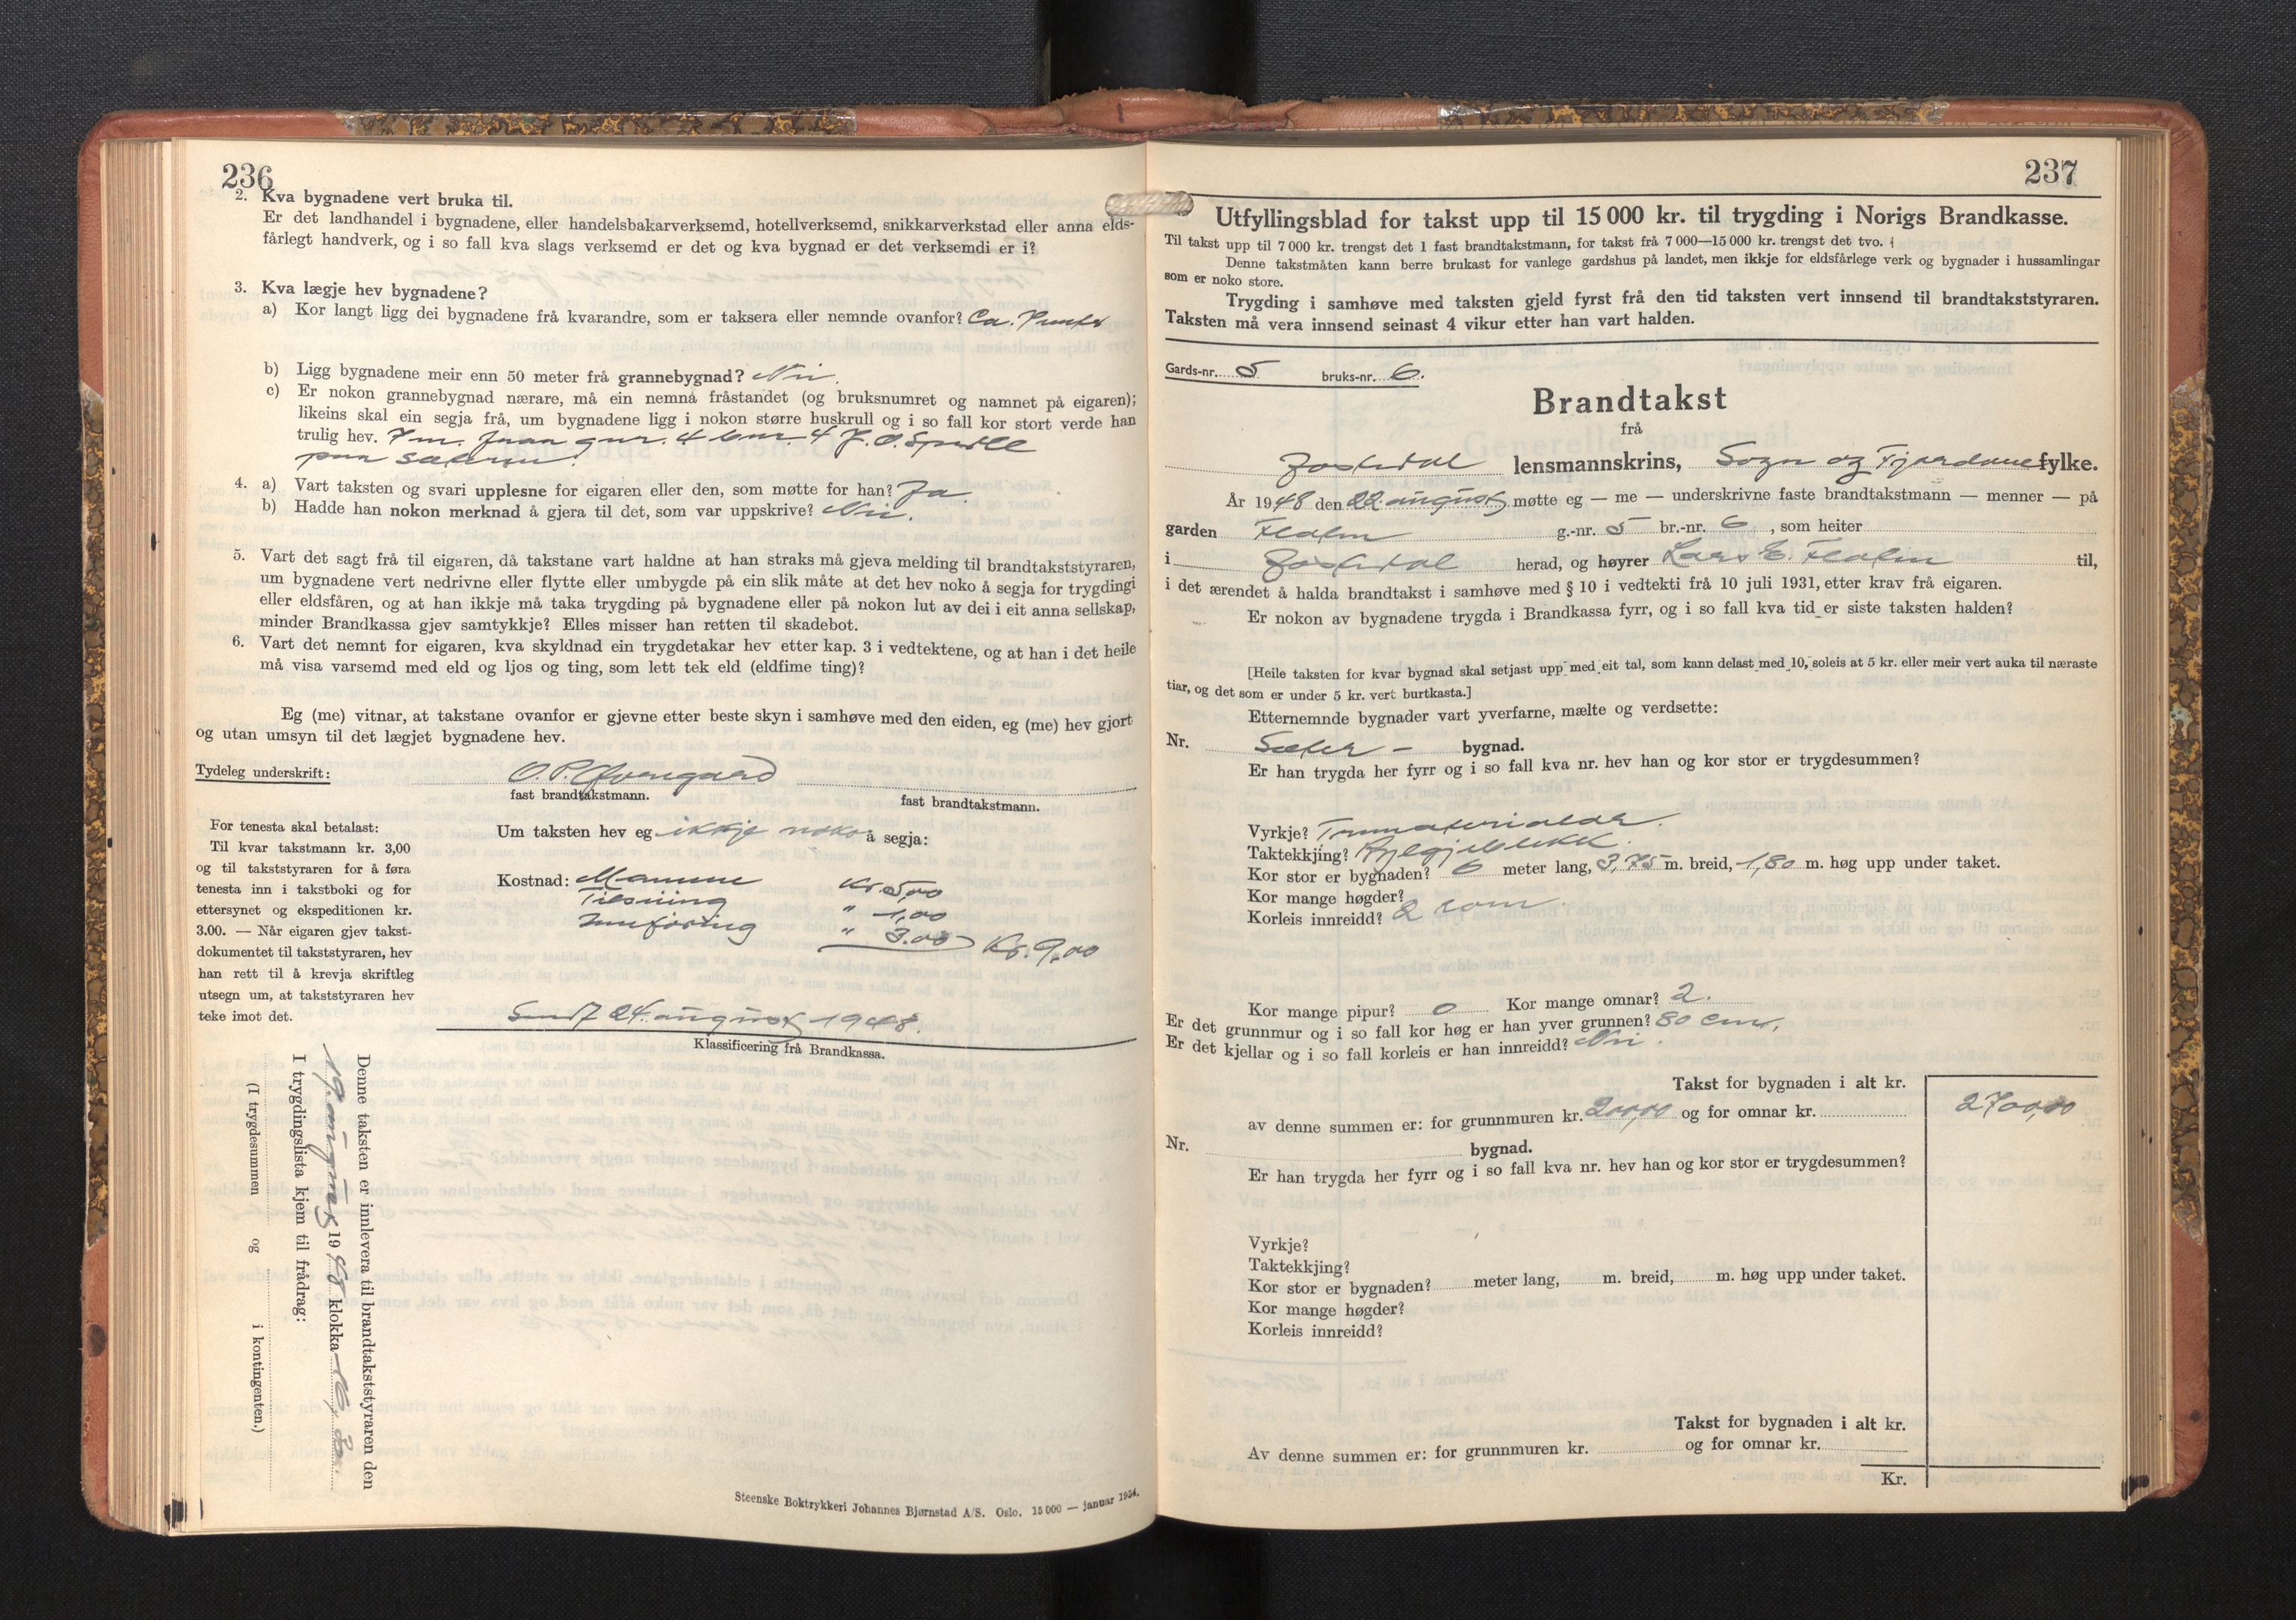 236
2. Kva bygnadene vert bruka til.
Er det landhandel i bygnadene, eller handelsbakarverksemd, hotellverksemd, snikkarverkstad eller anna elds-
fårlegt handverk, og i so fall kva slags verksemd er det og kva bygnad er det verksemdi er i?
3. Kva lægje hev bygnadene?
a) Kor langt ligg dei bygnadene frå kvarandre, som er taksera eller nemnde ovanfor? Ca.
b) Ligg bygnadene meir enn 50 meter frå grannebygnad? Nei.
c) Er nokon grannebygnad nærare, må ein nemna fråstandet (og bruksnumret og namnet på eigaren);
likeins skal ein segja frå, um bygnadene ligg i nokon større huskrull og i so fall kor stort verde han
trulig hev. 7 m. fraa gnr. 4 bnr. 4 J. O. Sperle
paa sæteren.
4. a) Vart taksten og svari upplesne for eigaren eller den, som møtte for han? Ja.
b) Hadde han nokon merknad å gjera til det, som var uppskrive? Nei.
5. Vart det sagt frå til eigaren, då takstane vart haldne at han straks må gjeva melding til brandtakststyraren,
um bygnadene vert nedrivne eller flytte eller umbygde på ein slik måte at det hev noko å segja for trygdingi
eller eldsfåren, og at han ikkje må taka trygding på bygnadene eller på nokon lut av dei i eit anna sellskap,
minder Brandkassa gjev samtykkje? Elles misser han retten til skadebot.
6. Vart det nemnt for eigaren, kva skyldnad ein trygdetakar hev etter kap. 3 i vedtektene, og at han i det heile
må visa varsemd med eld og ljos og ting, som lett tek eld (eldfime ting)?
Eg (me) vitnar, at takstane ovanfor er gjevne etter beste skyn i samhøve med den eiden, eg (me) hev gjort
og utan umsyn til det lægjet bygnadene hev.
Tydeleg underskrift: O. P. Øvregaard
fast brandtakstmann. fast brandtakstmann.
For tenesta skal betalast:
Til kvar takstmann kr. 3,00
og til takststyraren for å føra
tenesta inn i takstboki og for
ettersynet og ekspeditionen kr.
3.00. — Når eigaren gjev takst-
dokumentet til takststyraren, hev
han rett til å krevja skriftleg
utsegn um, at takststyraren hev
teke imot det.
Um taksten hev eg ikkje noko å segja:
Kostnad: Mannen kr. 5,00
Tilsining " 1,00
Innføring " 3.00 Kr. 9,00
Sendt 24. august 1948.
Klassificering frå Brandkassa.
Denne taksten er innlevera til brandtakststyraren den
19. august 1948 klokka 16,30.
I trygdingslista kjem til frådrag:
(I trygdesummen og i kontingenten.)
Steenske Boktrykkeri Johannes Bjørnstad A/S. Oslo. 15 000 — januar 1934.
237
Utfyllingsblad for takst upp til 15 000 kr. til trygding i Norigs Brandkasse.
Til takst upp til 7 000 kr. trengst det 1 fast brandtakstmann, for takst frå 7 000—15 000 kr. trengst det tvo.
Denne takstmåten kann berre brukast for vanlege gardshus på landet, men ikkje for eldsfårlege verk og bygnader i hussamlingar
som er noko store.
Trygding i samhøve med taksten gjeld fyrst frå den tid taksten vert innsend til brandtakststyraren.
Taksten må vera innsend seinast 4 vikur etter han vart halden.
Gards-nr. 5 bruks-nr. 6.
Brandtakst
frå
Jostedal lensmannskrins, Sogn og Fjordane fylke.
År 1948 den 22. august møtte eg — me — underskrivne faste brandtakstmann — menner — på
garden Flatm g.-nr. 5 br.-nr. 6, som heiter
i Jostedal herad, og høyrer Lars E. Flatm til,
i det ærendet å halda brandtakst i samhøve med § 10 i vedtekti frå 10 juli 1931, etter krav frå eigaren.
Er nokon av bygnadene trygda i Brandkassa fyrr, og i so fall kva tid er siste taksten halden?
[Heile taksten for kvar bygnad skal setjast upp med eit tal, som kann delast med 10, soleis at 5 kr. eller meir vert auka til næraste
tiar, og det som er under 5 kr. vert burtkasta.]
Etternemnde bygnader vart yverfarne, mælte og verdsette:
Nr. Sæter – bygnad.
Er han trygda her fyrr og i so fall kva nr. hev han og kor stor er trygdesummen?
Vyrkje? Trematerialar.
Taktekkjing? Bylgjeblekk.
Kor stor er bygnaden? 6 meter lang, 3,75 m. breid, 1,80 m. høg upp under taket.
Kor mange høgder?
Korleis innreidd? 2 rom.
Kor mange pipur? 0 Kor mange omnar? 2.
Er det grunnmur og i so fall kor høg er han yver grunnen? 80 cm.
Er det kjellar og i so fall korleis er han innreidd? Nei.
Takst for bygnaden i alt kr.
av denne summen er: for grunnmuren kr. 200,00 og for omnar kr. 2700,00
Nr. bygnad.
Er han trygda her fyrr og i so fall kva nr. hev han og kor stor er trygdesummen?
Vyrkje?
Taktekkjing?
Kor stor er bygnaden? meter lang, m. breid, m. høg upp under taket.
Kor mange høgder?
Korleis innreidd?
Takst for bygnaden i alt kr.
Av denne summen er: for grunnmuren kr. og for omnar kr.
Kr.